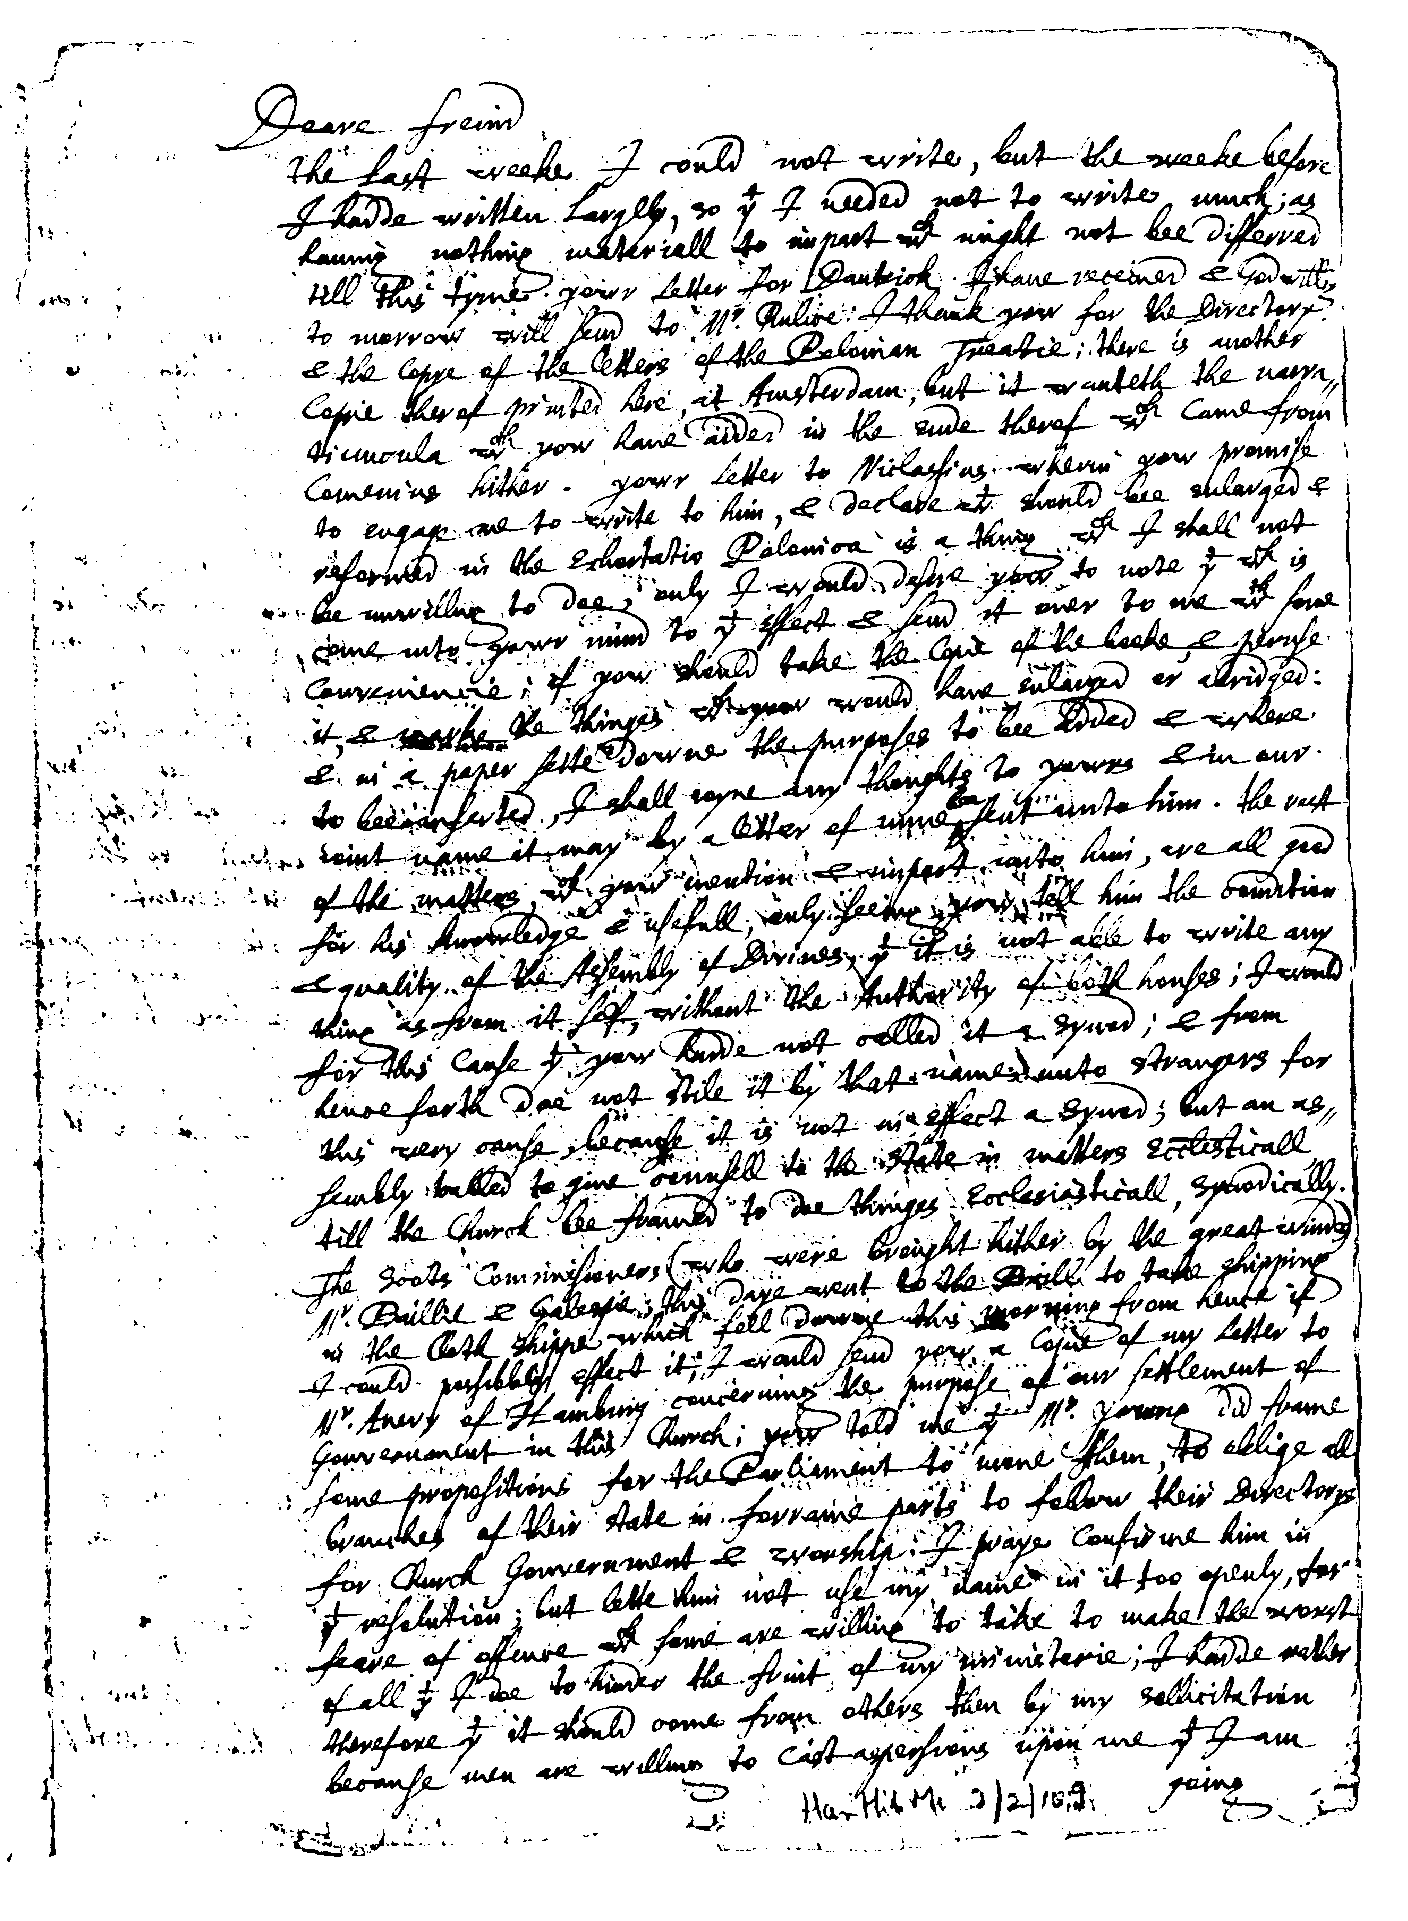 Deare freind
the last weeke I could not write, but the weeke before
I hadde written largely, so yt I needed not to write much; as
hauing nothing materiall to impart wch might not bee differred
till this tyme. yowr letter for Dantzick I haue receiued & God willing
to morrow will send to Mr. Rulice: I thank yow for the Directory
& the Copye of the letters of the Polonian Treatie; there is another
Copie therof printed here, at Amsterdam, but it wanteth the narra,,
tiuncula wch yow haue added in the ende therof wch Came from
Comenius hither. yowr letter to Niclassius wherin yow promise
to engage me to write to him, & declare wt should bee enlarged &
reformed in the Exhortatio Polonica is a thing wch I shall not
be unwilling to doe; only I would desire yow to note yt wch is
come into yowr mind to yt effect & send it over to me wth some
Conveniencie; if yow should take the Copie of the booke & peruse
it, & the thinges wch yow would have enlarged or abridged:
& in a paper sette downe the purposes to bee added & where
to bee inserted, I shall ioyne my thoughts to yowrs & in our
ioint name it may by a letter of mine bee sent unto him. the rest
of the matters wch yow mention & impart unto him, are all good
for his knowledge & usefull, only seeing yow tell him the condition
& quality of the Assembly of Divines, yt it is not able to write any
thing as from it self, without the Authority of both houses; I would
for this Cause yt yow hadde not called it a Synod; & from
henceforth doe not stile it by that name unto strangers for
this very cause, because it is not in effect a Synod; but an as,,
sembly called to giue counsell to the State in matters Ecclesticall
till the Church be framed to doe thinges Ecclesiasticall, synodically.
The Scots Commissioners (who were brought hither by the great winds)
Mr. Baillie & Galespie; this daye went to the Brill to take shipping
in the Cloth shippe which fell downe this morning from hence if
I could possibbly effect it, I would send yow a Copie of my letter to
Mr. Avery of Hamburg concerning the purpose of our settlement of
Gouvernment in this Church; yow told me yt Mr. young did frame
some propositions for the Parliament to moue them, to oblige all
branches of their state in forraine parts to follow their Directorys
for Church Gouvernment & worship: I praye Confirme him in
yt resolution; but lette him not use my name in it too openly, for
feare of offence wch some are willing to take to make the worst
of all yt I doe to hinder the fruit of my ministerie; I hadde rather
therefore yt it should come from others then by my sollicitation
because men are willing to Cast aspersions upon me yt I am
going